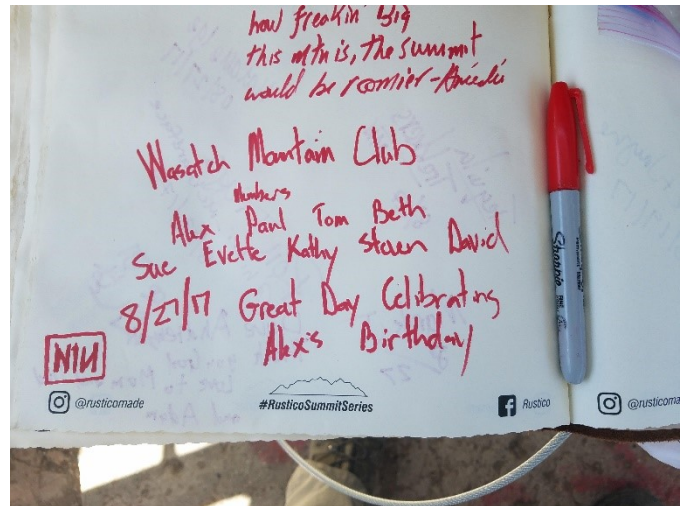 how freakin' big
this mtn is, the summit
would be roomier -
Wasatch Mountain Club
Members
Alex Paul Tom Beth
Sue Evette Kathy Steven David
8/27/17 Great Day Celibrating
Alex's Birthday
@rusticomade
#RusticoSummitSeries
Rustico
@rusticoma
Sharpie